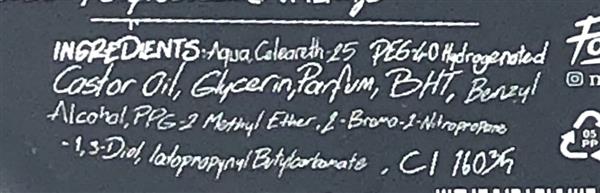 INGREDIENTS: Aqua, Ceteareth-25 PEG-40 Hydrogenated
Castor Oil, Glycerin, Parfum, BHT, Benzyl
Alcohol, PPG-2 Methyl Ether, 2-Bromo-2-Nitropropane
-1,3-Diol, Iodopropynyl Butylcarbamate, CI 16035
05
PP